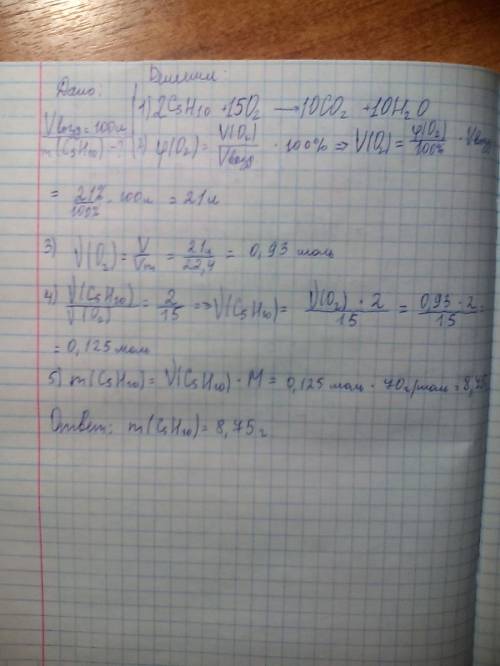 Дано: Решение:
Vвозд = 100л 1) 2C5H10 + 15O2 → 10CO2 + 10H2O
m(C5H10) - ? 2) φ(O2) = V(O2)/Vвозд · 100% => V(O2) = φ(O2)/100% · Vвозд
= 21%/100% · 100л = 21л
3) ν(O2) = V/Vm = 21л/22,4 = 0,93 моль
4) ν(C5H10)/ν(O2) = 2/15 => ν(C5H10) = ν(O2) · 2/15 = 0,93 · 2/15 =
= 0,125 моль
5) m(C5H10) = ν(C5H10) · M = 0,125 моль · 70г/моль = 8,75
Ответ: m(C5H10) = 8,75 г